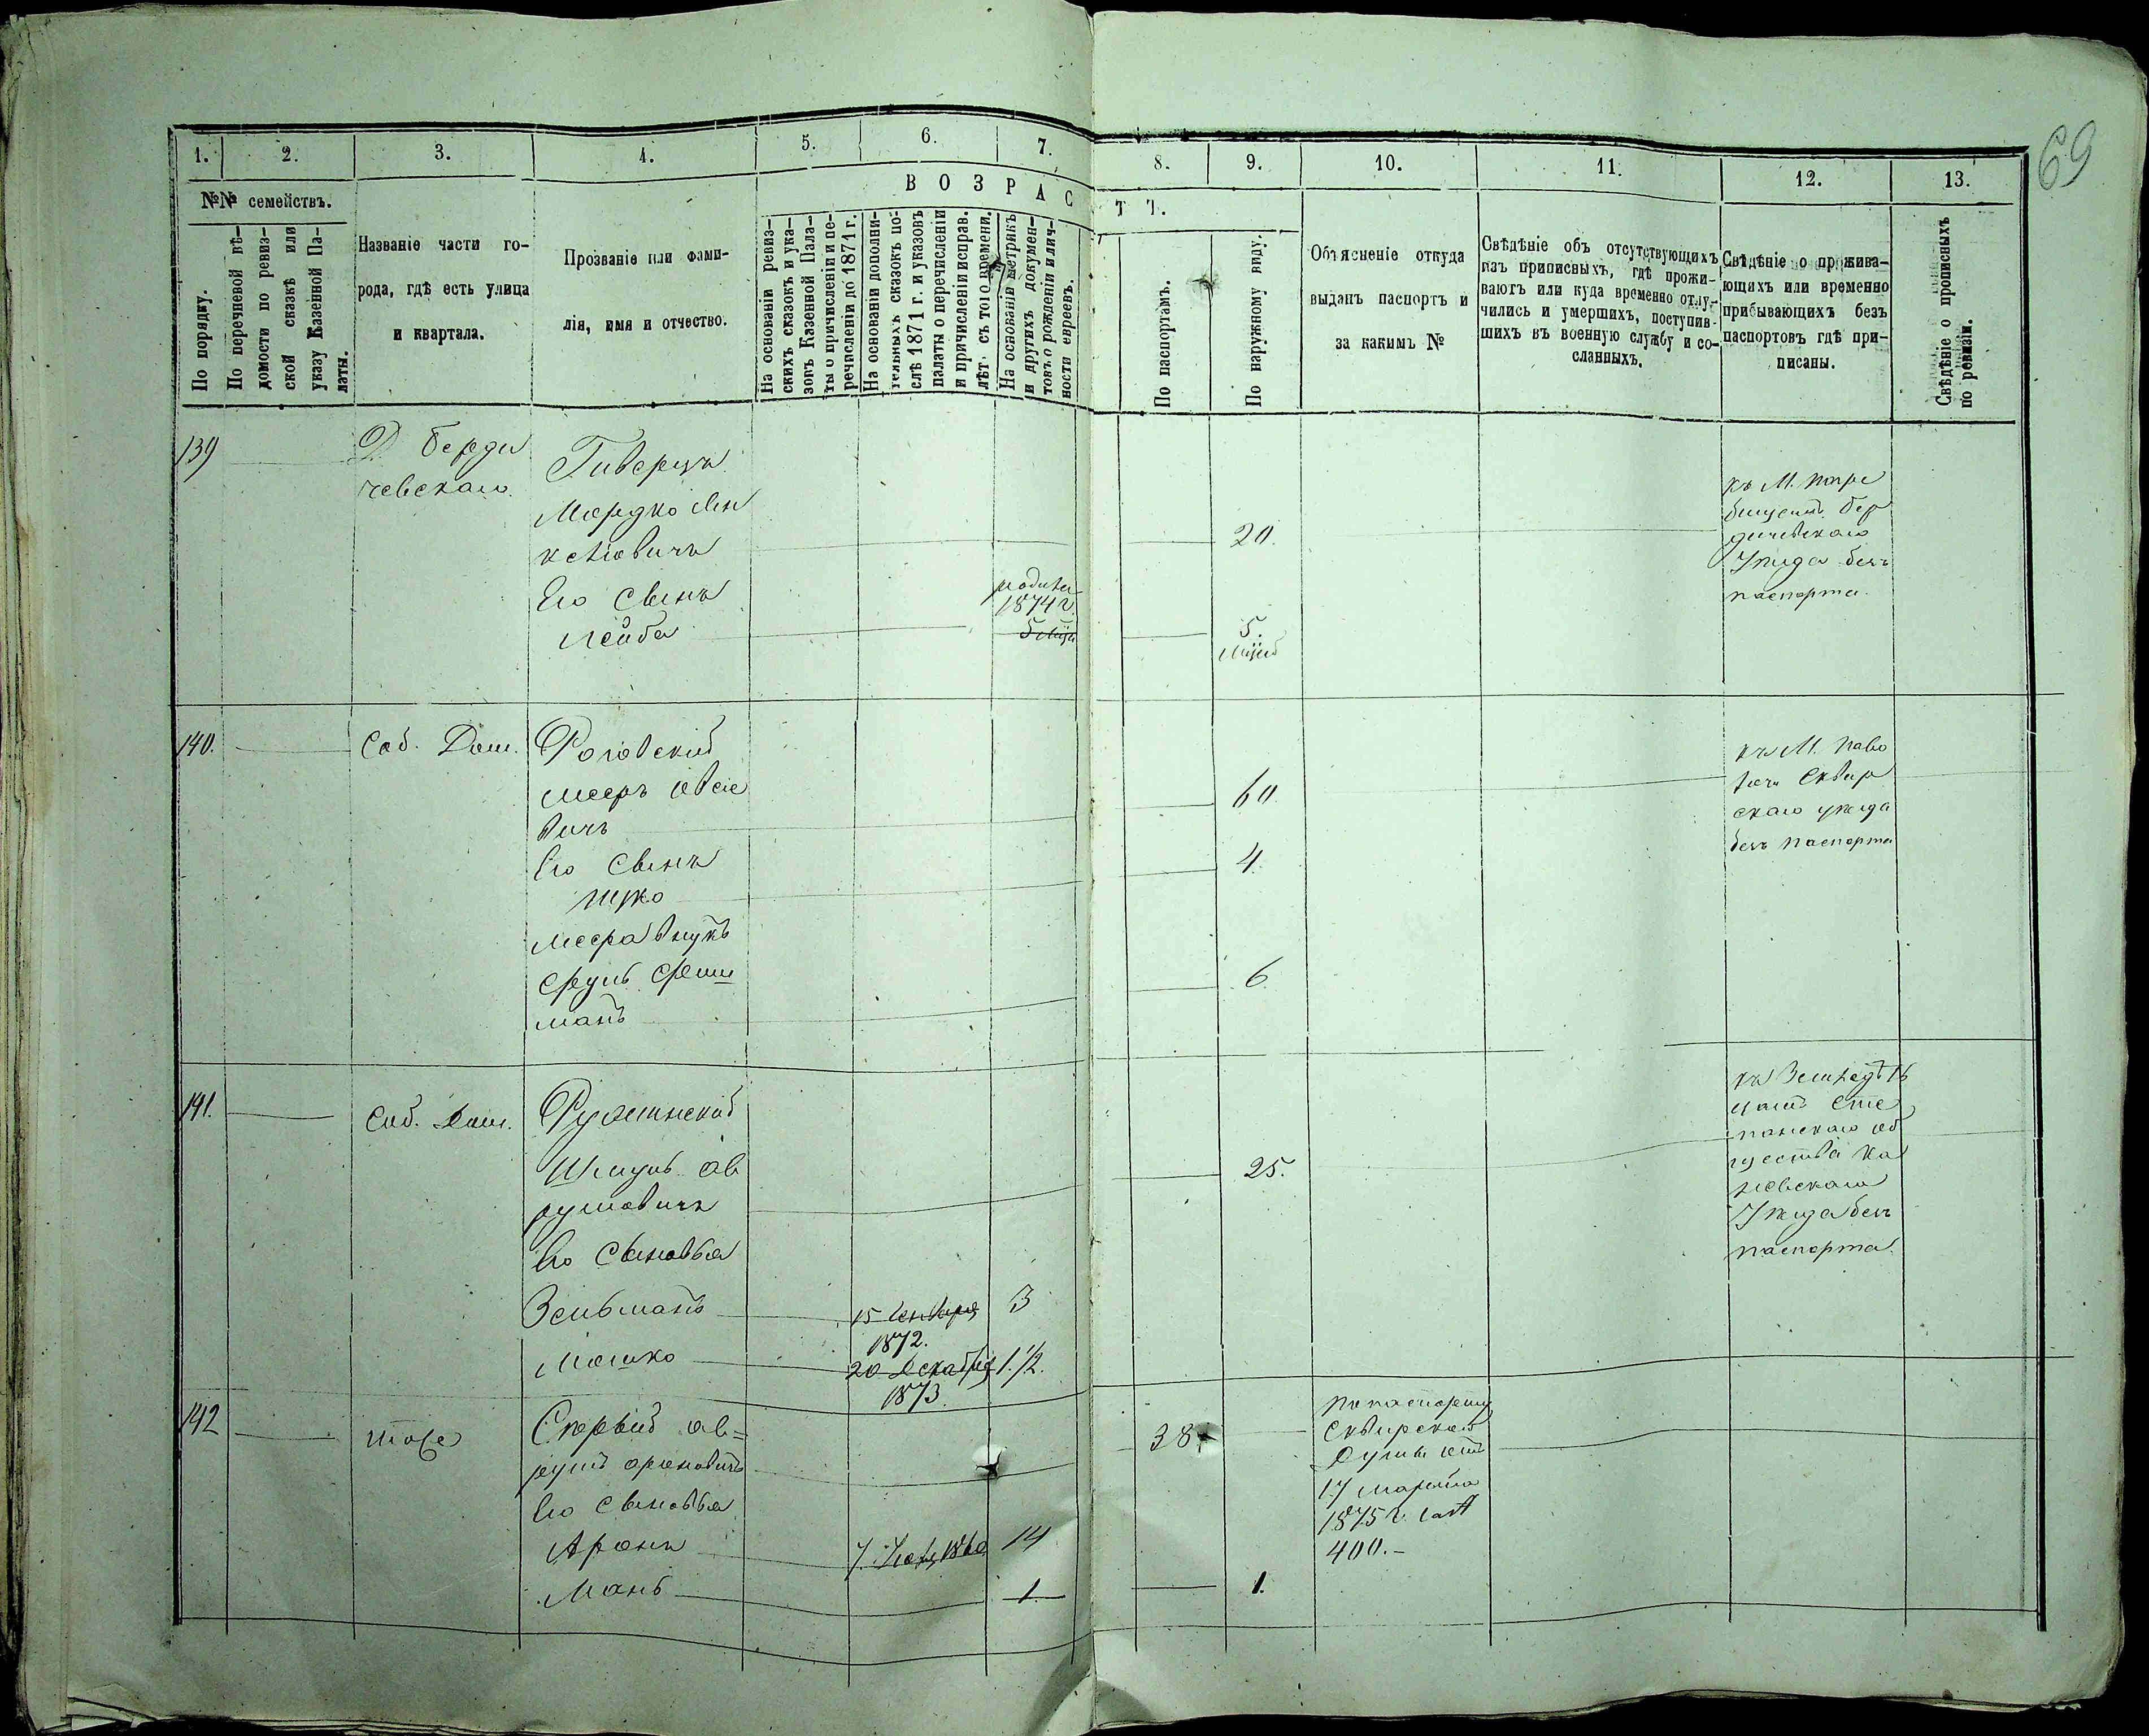 69
1.
2.
3.
4.
5.
6.
7.
8.
9.
10.
11.
12.
13.
№№ семействъ.
По порядку.
По перечневой вѣ-
домости по ревиз-
ской сказкѣ или
указу Казенной Па-
латы.
Названіе части го-
рода, гдѣ есть улица
и квартала.
Прозваніе или фами-
лія, имя и отчество.
ВОЗРАСТ Т.
На основаніи ревиз-
скихъ сказокъ и ука-
зовъ Казенной Пала-
ты о причисленіи и пе-
речисленіи до 1871 г.
На основаніи дополни-
тельныхъ сказокъ по-
слѣ 1871 г. и указовъ
палаты о перечисленіи
и причисленіи исправ.
лѣт. съ того времени.
На основаніи метрикъ
и другихъ докумен-
товъ о рожденіи и лич-
ности евреевъ.
По паспортамъ.
По наружному виду.
Объясненіе откуда
выданъ паспортъ и
за какимъ №
Свѣдѣніе объ отсутствующихъ
изъ приписныхъ, гдѣ прожи-
ваютъ или куда временно отлу-
чились и умершихъ, поступив-
шихъ въ военную службу и со-
сланныхъ.
Свѣдѣніе о прожива-
ющихъ или временно
прибывающихъ безъ
паспортовъ гдѣ при-
писаны.
Свѣдѣніе о прописныхъ
по ревизіи.
139
Д Берди
чевскаго
Гиверцъ
Мордко
Его Сынъ
Лейба
родился
1874 г.
20.
5.
къ М.
Бер
дичевскаго
Уѣзда безъ
паспорта.
140.
Соб. Дом.
Роговскій
Мееръ Овсіе
вичъ
Его Сынъ
Ицко
Меера внукъ
Сруль
60.
4.
6
къ М. Паво
лочи Сквир
скаго уѣзда
безъ паспорта
141.
Соб. Дом.
Ружинскій
Шмуль Ав
румовичъ
Его Сыновья
Зельманъ
Мошко
15 Января
1872.
3
20 Декабря
1873.
1.½.
25.
къ Земледѣль
цамъ Сте
панскаго об
щества Ка
невскаго
Уѣзда безъ
паспорта.
142
тоже
Ав=
румъ Ароновичъ
Его Сыновья
Аронъ
Мань
14
1.
38
1.
По паспорту
Сквирской
Думы отъ
17 Марта
1875 г. за №
400.-